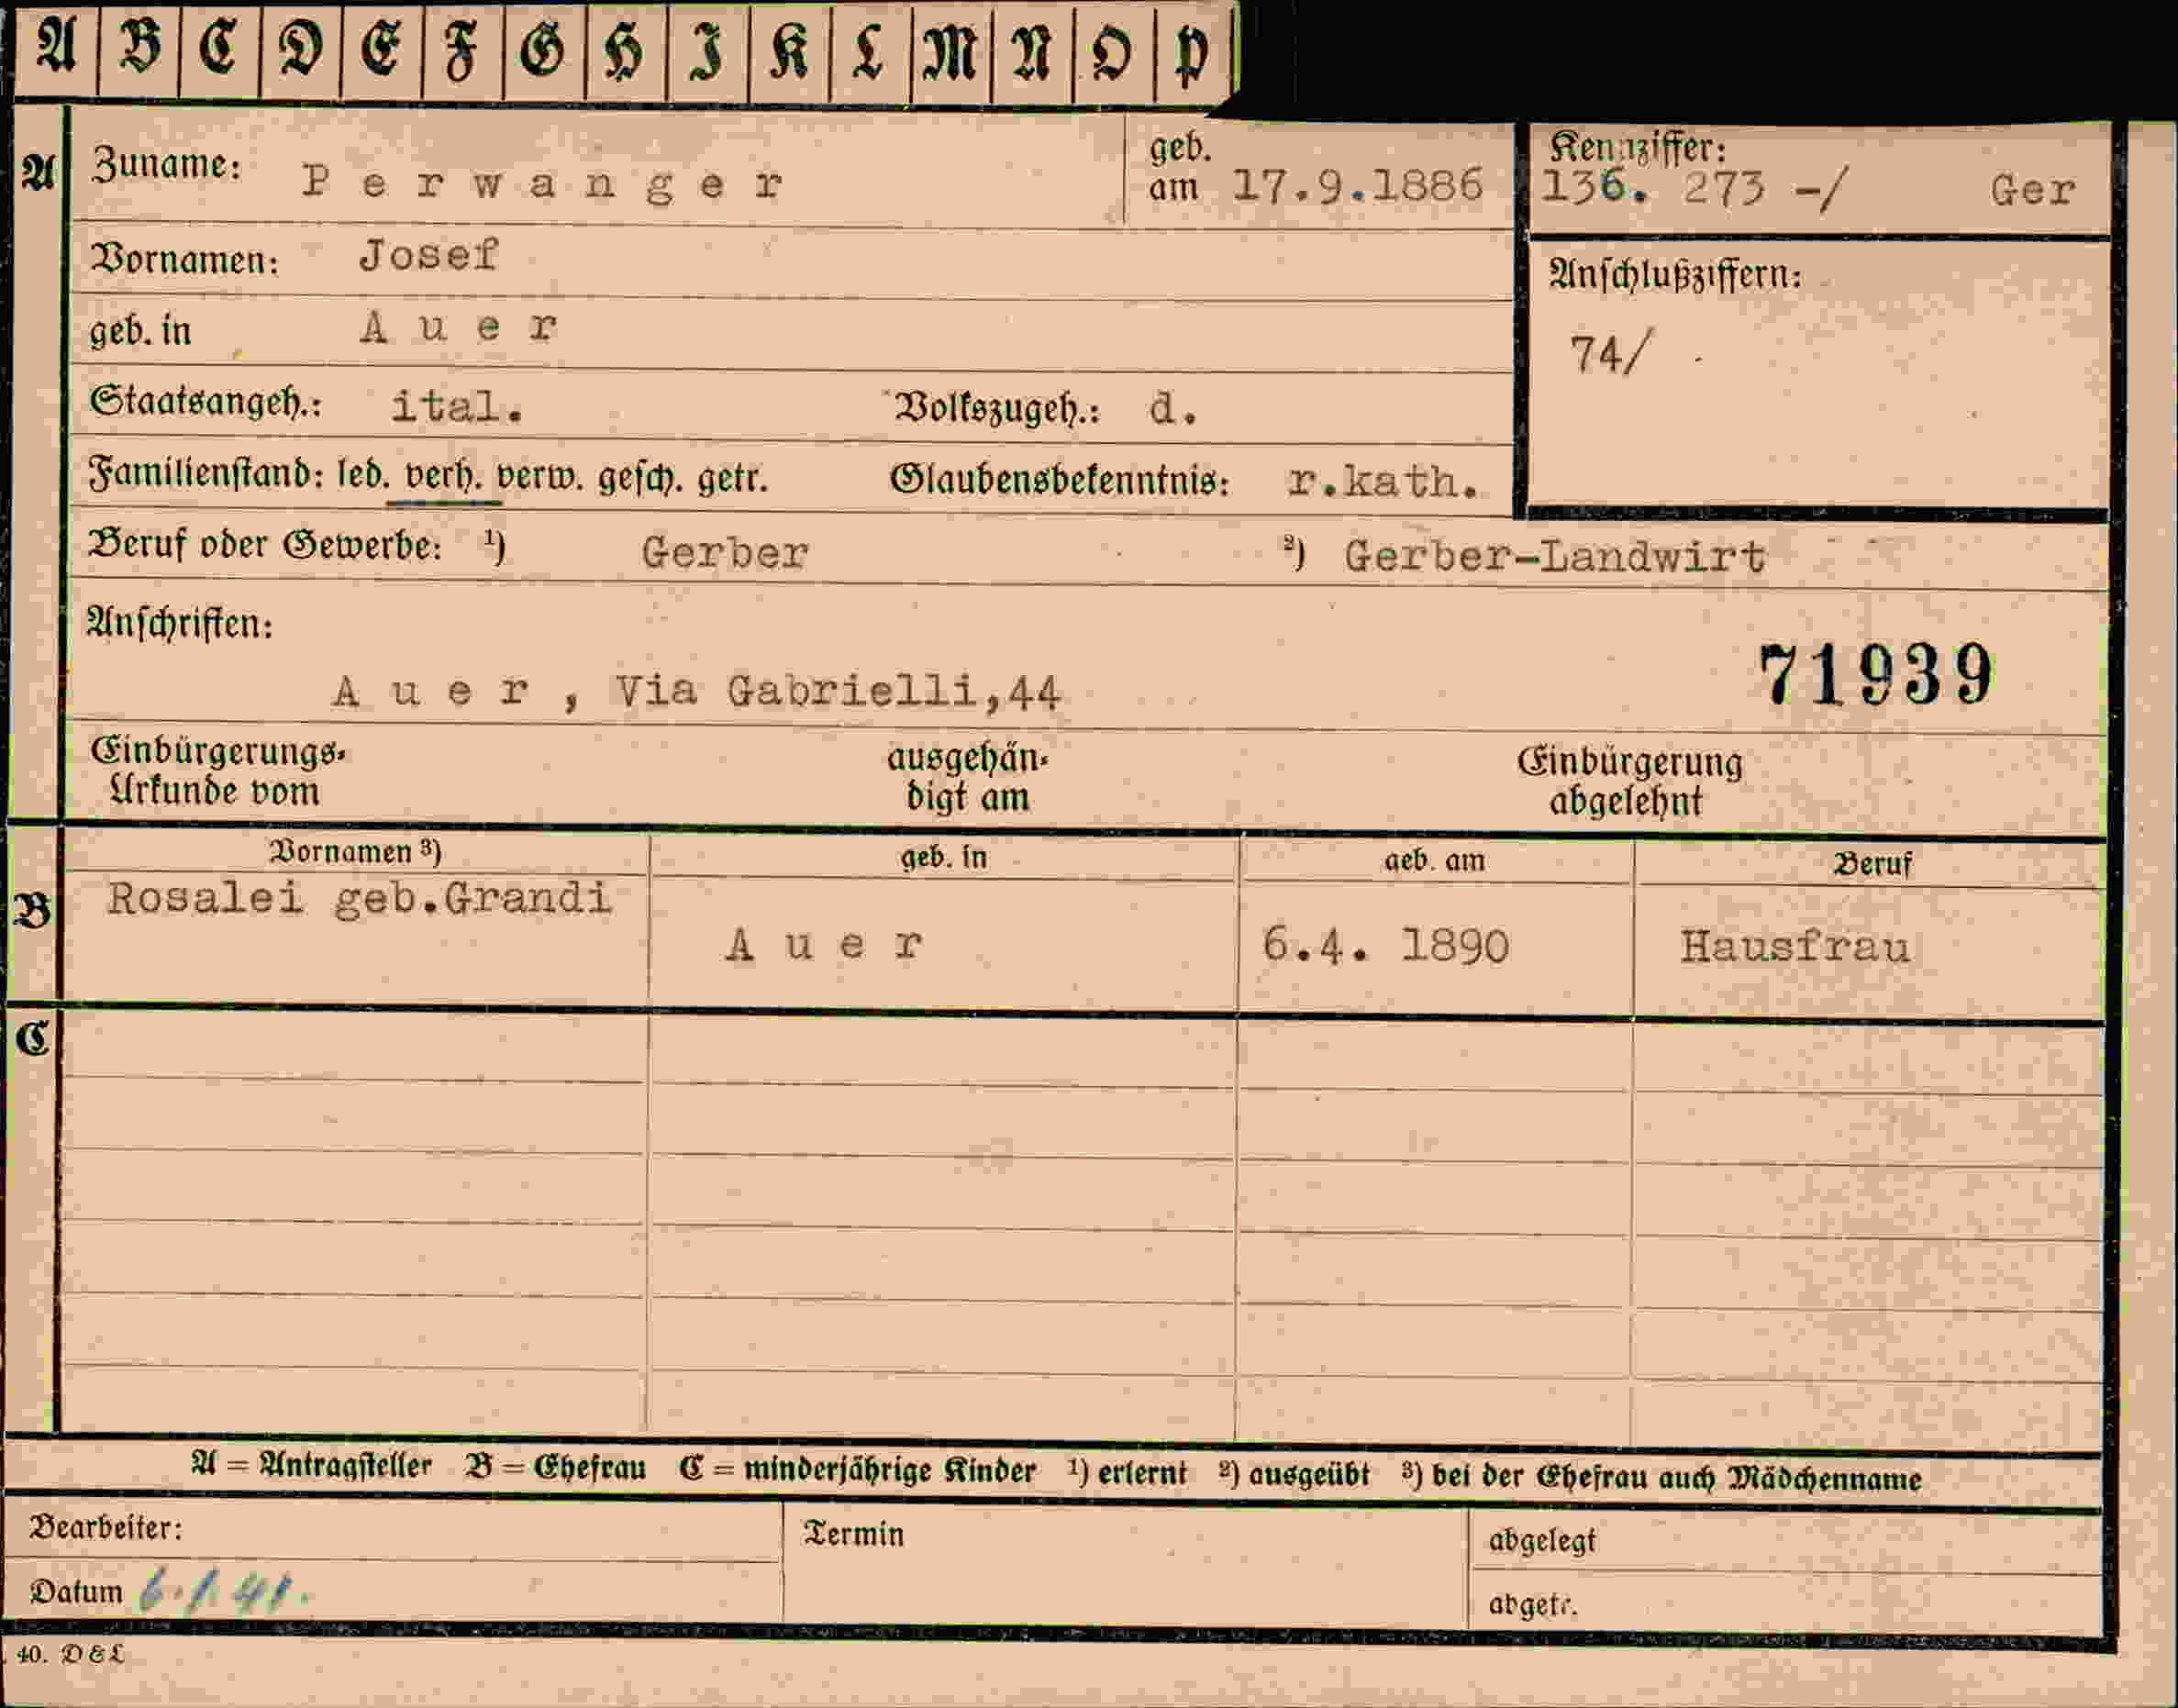 A B C D E F G H I K L M N O P
A Zuname: Perwanger geb. am 17.9.1886 Kennziffer: 136. 273 -/ Ger
Vornamen: Josef
Anschlußziffern:
geb. in Auer
74/
Staatsangeh.: ital. Volkszugeh.: d.
Familienstand: led. verh. verw. gesch. getr. Glaubensbekenntnis: r.kath.
Beruf oder Gewerbe: 1) Gerber 2) Gerber-Landwirt
Anschriften:
71939
Auer, Via Gabrielli,44
Einbürgerungs- ausgehän- Einbürgerung
Urkunde vom digt am abgelehnt
Vornamen 3) geb. in geb. am Beruf
B Rosalei geb.Grandi
Auer 6.4. 1890 Hausfrau
C
A = Antragsteller B = Ehefrau C = minderjährige Kinder 1) erlernt 2) ausgeübt 3) bei der Ehefrau auch Mädchenname
Bearbeiter: Termin abgelegt
Datum 6.1.41. abgetr.
40. D & L